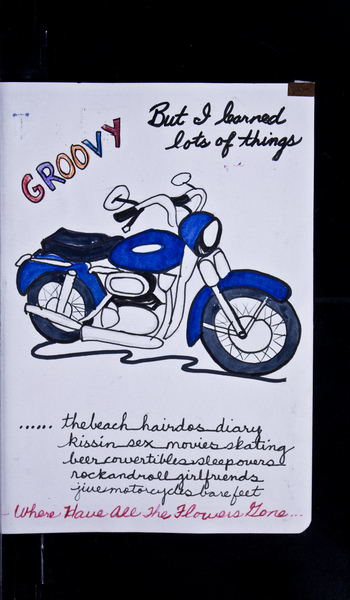 GROOVY
But I learned
lots of things
...... thebeach hairdos diary
kissin sex movies skating
beer covertibles sleepovers
rockandroll girlfriends
jive motorcycles barefeet
Where Have All The Flowers Gone...